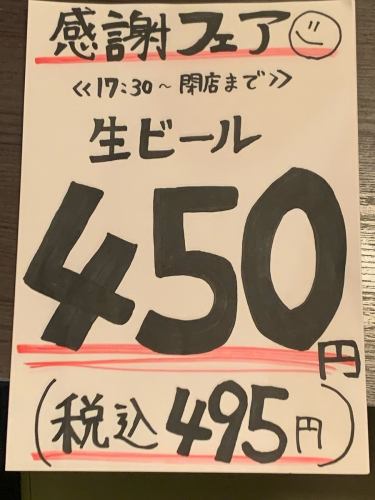 感謝フェア
≪17:30～閉店まで≫
生ビール
450円
(税込495円)